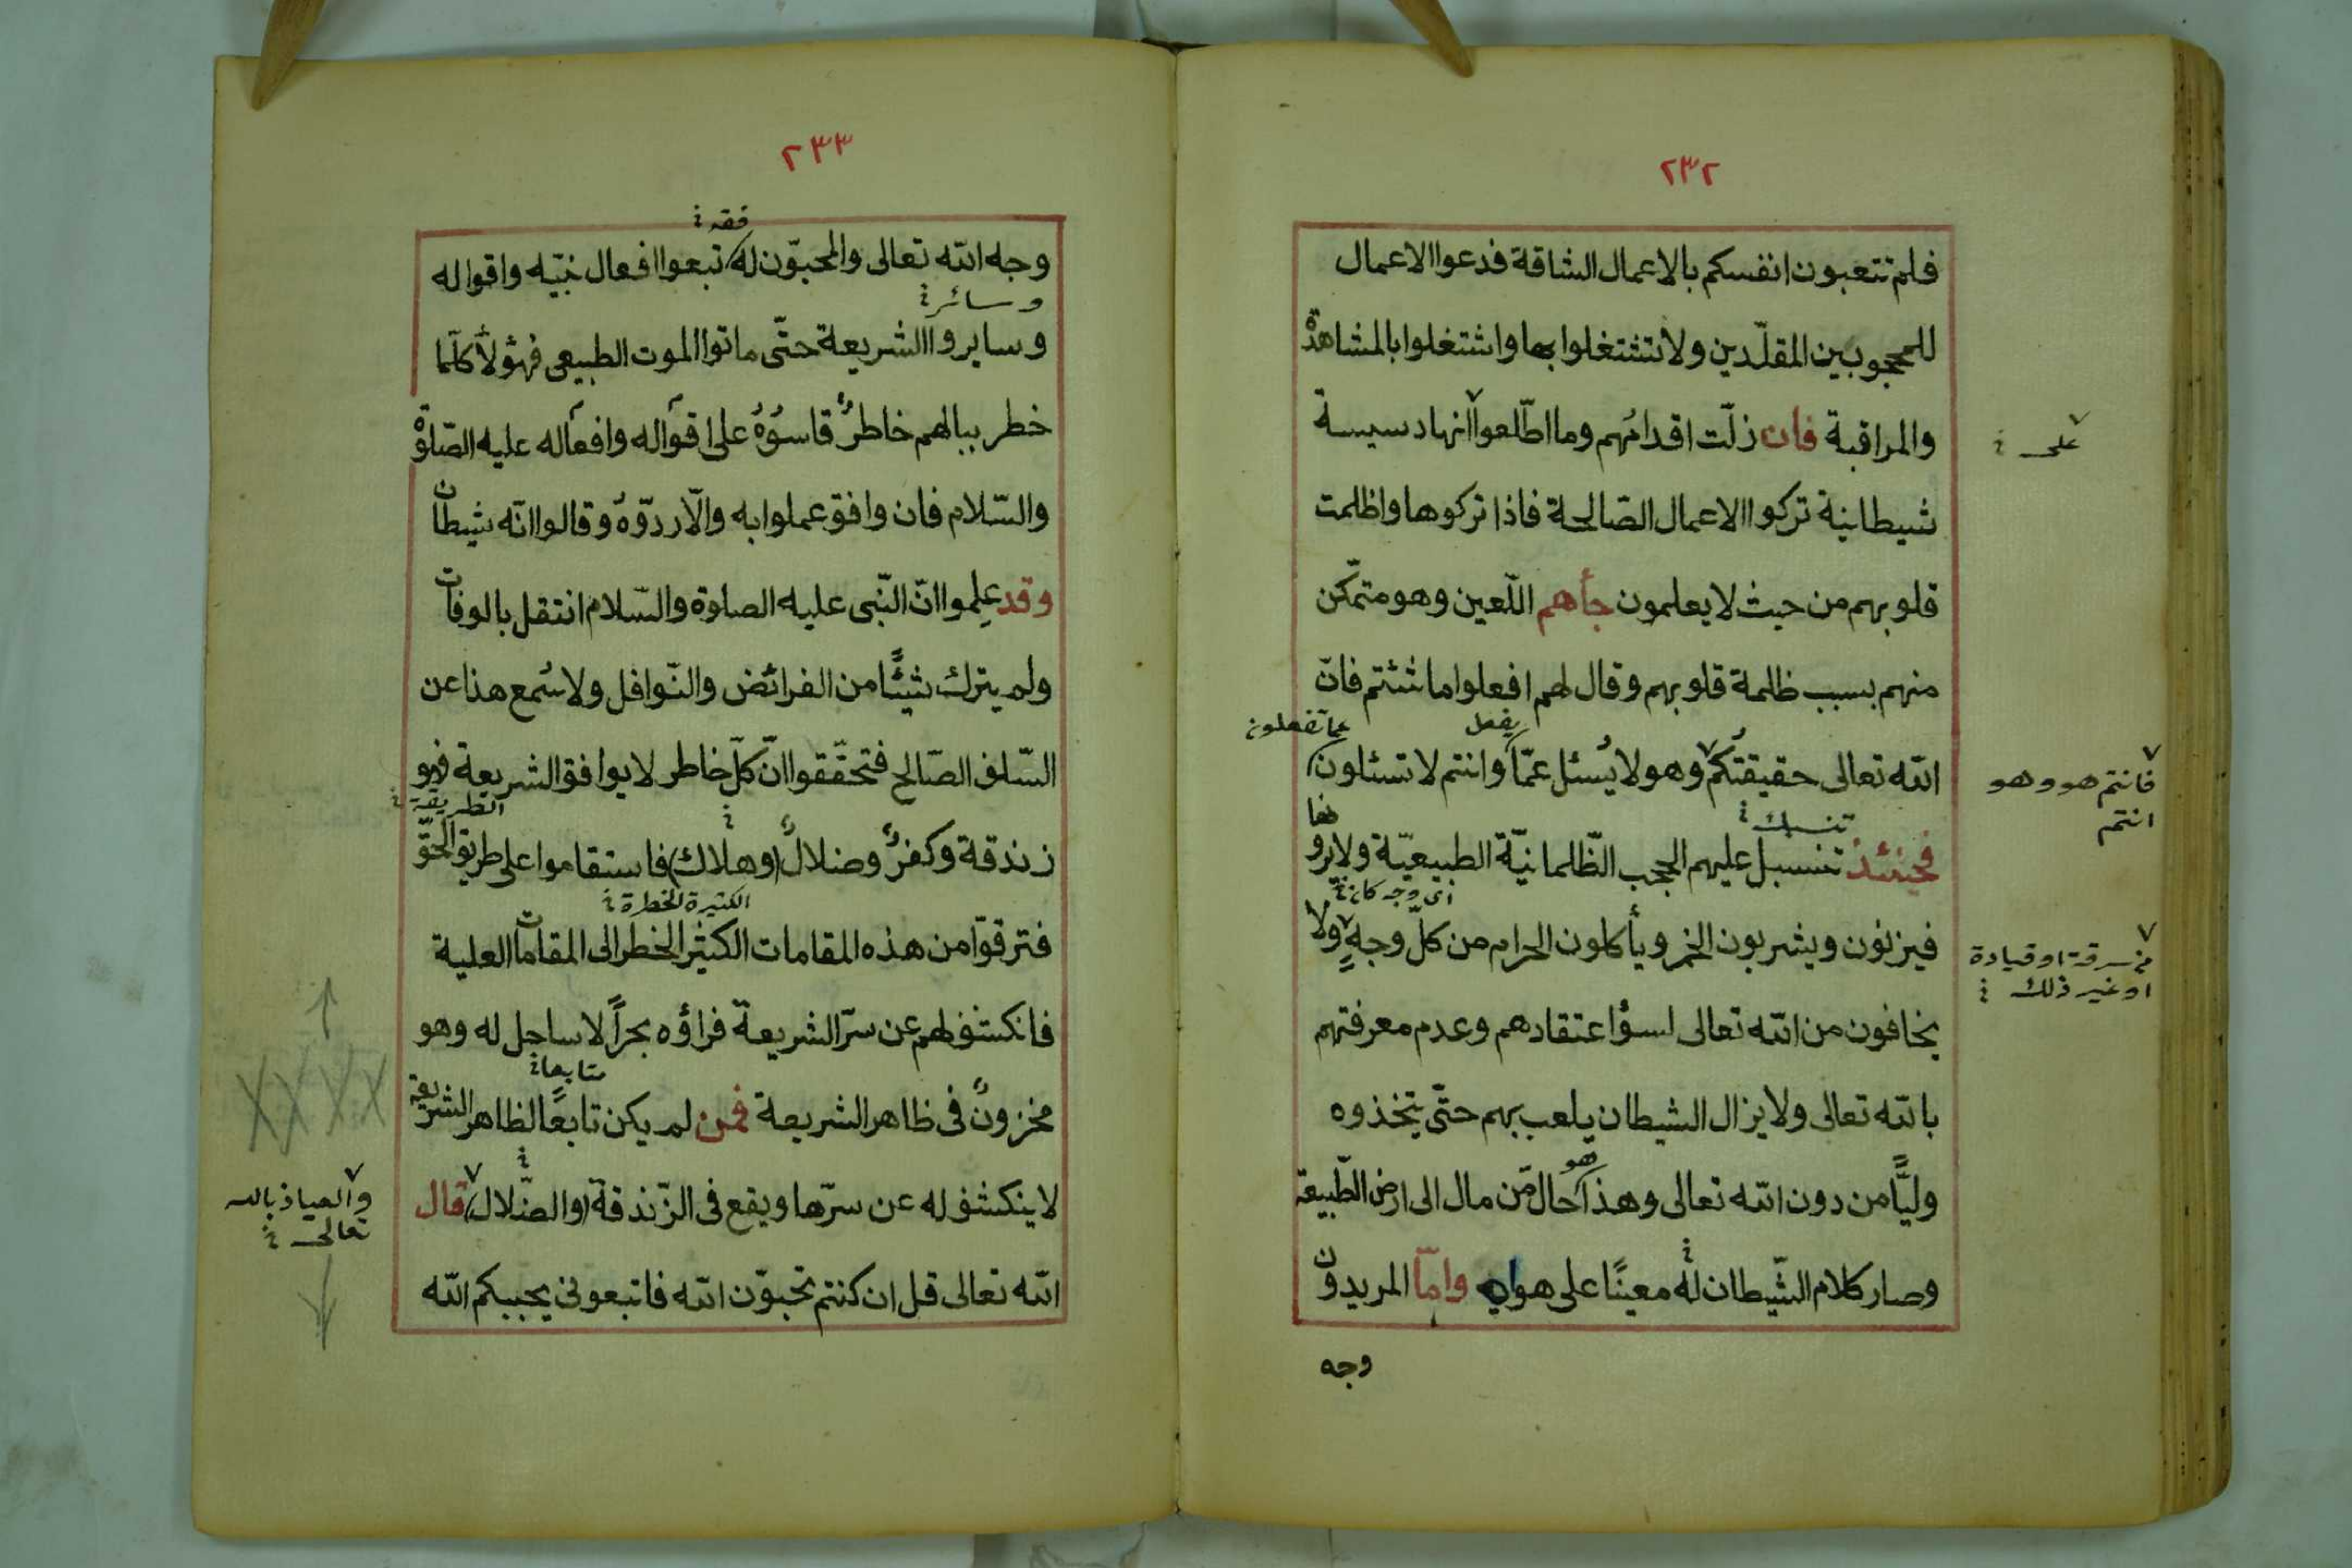 ٢٣٢
فلم تتعبون انفسكم بالاعمال الشاقة فدعوا الاعمال
للمحجوبين المقلّدين ولا تشتغلوا بها واشتغلوا بالمشاهدة
والمراقبة فان زلّت اقدامُهم وما اطّلعوا انها دسيسة
على
شيطانية تركوا الاعمال الصّالحة فاذا تركوها واظلمت
قلوبهم من حيث لا يعلمون جأهم اللّعين وهو متمكّن
منهم بسبب ظلمة قلوبهم وقال لهم افعلوا ما شئتم فانّ
يفعل
عما تفعلون
الله تعالى حقيقتُكُم وهو لا يُسئل عمّا وانتم لا تسئلون
فانتم هو وهو
انتم
تنسبك
فحينئذ تنسبل عليهم الحجب الظّلمانيّة الطبيعيّة ولا يرو
نها
اى وجه كان
فيزنون ويشربون الخمر ويأكلون الحرام من كلّ وجهٍ ولا
من سرقة او قيادة
او غير ذلك
يخافون من الله تعالى لسؤ اعتقادهم وعدم معرفتهم
بالله تعالى ولا يزال الشيطان يلعب بهم حتّى يتّخذوه
هو
وليًّا من دون الله تعالى وهذا حال مّن مال الى ارض الطّبيعة
وصار كلام الشّيطان له معينًا على هواه وامّا المريدون
وجه
٢٣٣
فقد
وجه الله تعالى والمحبّون له تبعوا افعال نبيّه واقواله
وسائر
وسايروا الشريعة حتّى ماتوا الموت الطبيعى فهؤلأ كلّما
خطر ببالهم خاطرٌ قاسوُهُ على اقواله وافعاله عليه الصّلوة
والسّلام فان وافق عملوا به والّا ردّوّهُ وقالوا انّه شيطان
وقد علِموا انّ النّبى عليه الصلوة والسّلام انتقل بالوفات
ولم يترك شيئًا من الفرائض والنّوافل ولا سُمع هذا عن
السّلف الصّالح فتحقّقوا انّ كلّ خاطر لا يوافق الشريعة فهو
الطريقة
زندقة وكفرٌ وضلالٌ (وهلاك) فاستقاموا على طريق الحقّ
الكثيرة الخطرة
فترقوّا من هذه المقامات الكثير الخطر الى المقامات العلية
فانكشف لهم عن سرّ الشريعة فراؤه بحراً لا ساحل له وهو
متابعا
مخزونٌ فى ظاهر الشريعة فمن لم يكن تابعًا لظاهر الشريعة
لا ينكشف له عن سرّها ويقع فى الزّندقة (والضّلال) قال
والعياذ بالله
تعالى
الله تعالى قل ان كنتم تحبوّن الله فاتبعونى يحببكم الله